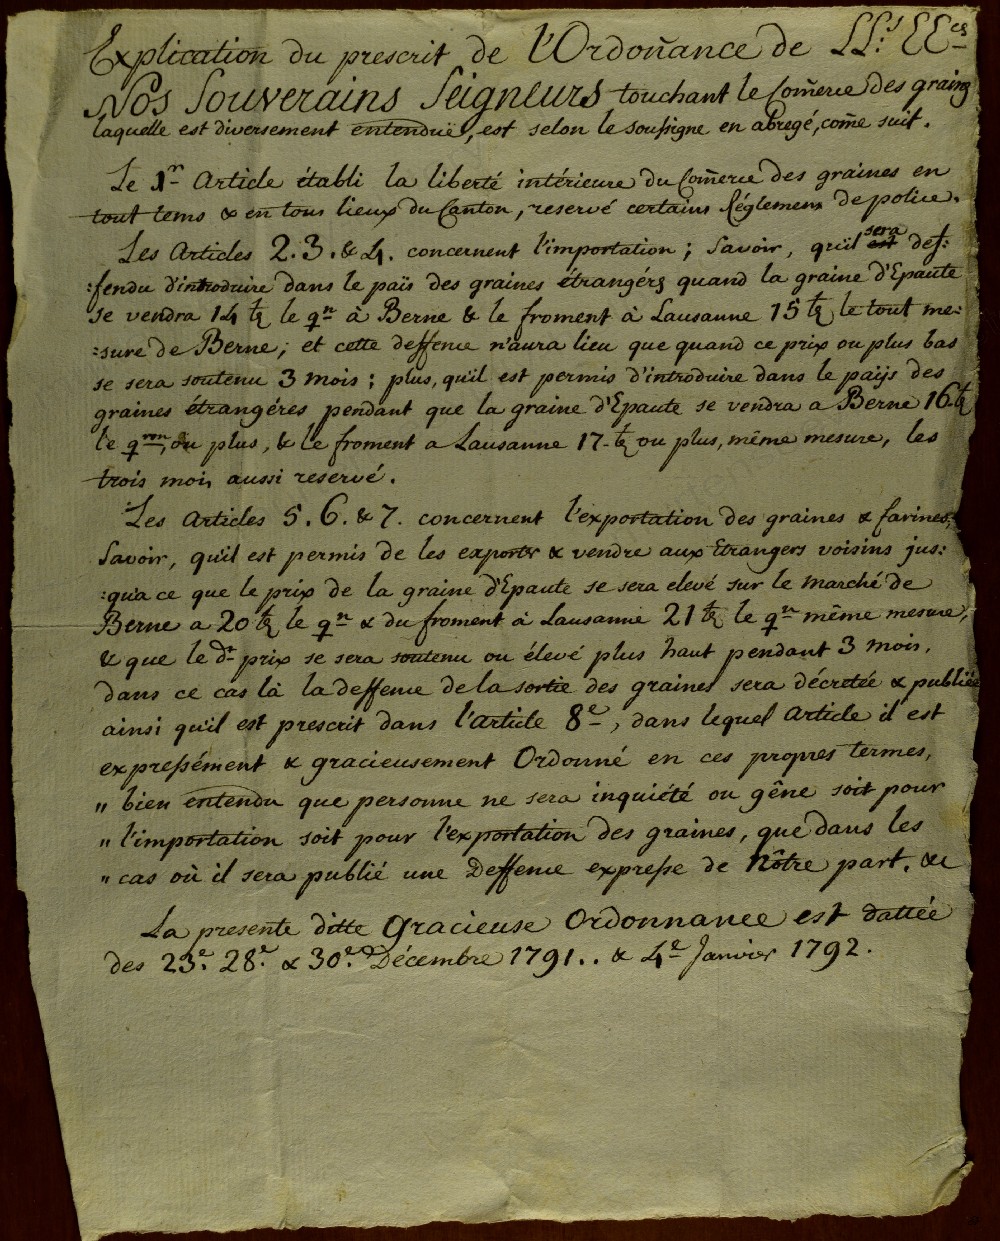 Explication du prescrit de l'Ordoñance de LL.s EE.ces
Nos Souverains Seigneurs touchant le Com̃erce des grains
laquelle est diversement entenduë, est selon le soussigne en abregé, com̃e suit.
Le 1.r Article établi la liberté intérieure du Com̃erce des graines en
tout tems & en tous lieux du Canton, reservé certains Réglemens de police.
Les Articles 2. 3. & 4. concernent l'importation ; Savoir, qu'il sera def:
:fendu d'introduire dans le païs des graines étrangérs quand la graine d'Epaute
se vendra 14 btz le q.n à Berne & le froment à Lausanne 15 btz le tout me:
:sure de Berne ; et cette deffense n'aura lieu que quand ce prix ou plus bas
se sera soutenu 3 mois ; plus, qu'il est permis d'introduire dans le païjs des
graines étrangéres pendant que la graine d'Epaute se vendra a Berne 16. btz
le q.ron, ou plus, & le froment a Lausanne 17. btz ou plus, même mesure, les
trois mois aussi reservé.
Les Articles 5. 6. & 7. concernent l'exportation des graines & farines,
Savoir, qu'il est permis de les exporter & vendre aux Etrangers voisins jus:
:qu'a ce que le prix de la graine d'Epaute se sera elevé sur le marché de
Berne a 20 btz le q.n & du froment à Lausanne 21 btz le q.n même mesure,
& que le d.t prix se sera soutenu ou élevé plus haut pendant 3 mois,
dans ce cas là la deffense de la sortie des graines sera décretée & publiée
ainsi qu'il est prescrit dans l'Article 8.e, dans lequel Article il est
expressément & gracieusement Ordonné en ces propres termes,
" bien entendu que personne ne sera inquiété ou gêne soit pour
" l'importation soit pour l'exportation des graines, que dans les
" cas où il sera publié une Deffense expresse de Nôtre part. &c
La presente ditte Gracieuse Ordonnance est dattée
des 23.e 28.e & 30.e Décembre 1791.. & 4.e Janvier 1792.